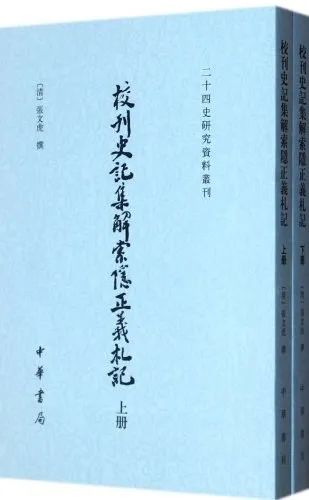 二十四史研究資料叢刊
校刊史記集解索隱正義札記
上册
〔清〕張文虎 撰
中華書局
校刊史記集解索隱正義札記
上册
〔清〕張文虎 撰
中華書局
校刊史記集解索隱正義札記
下册
〔清〕張文虎 撰
中華書局